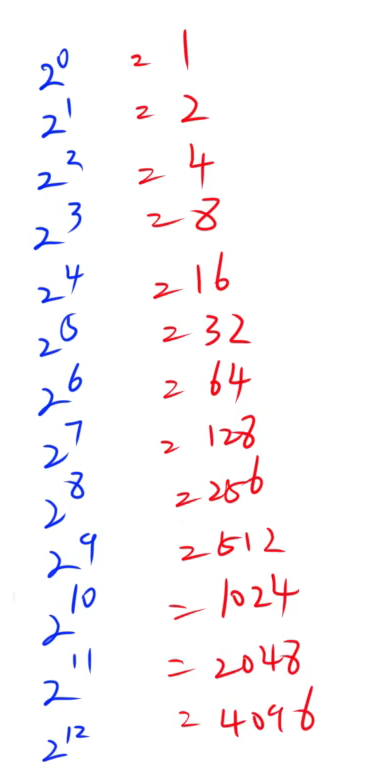 2⁰ = 1
2¹ = 2
2² = 4
2³ = 8
2⁴ = 16
2⁵ = 32
2⁶ = 64
2⁷ = 128
2⁸ = 256
2⁹ = 512
2¹⁰ = 1024
2¹¹ = 2048
2¹² = 4096